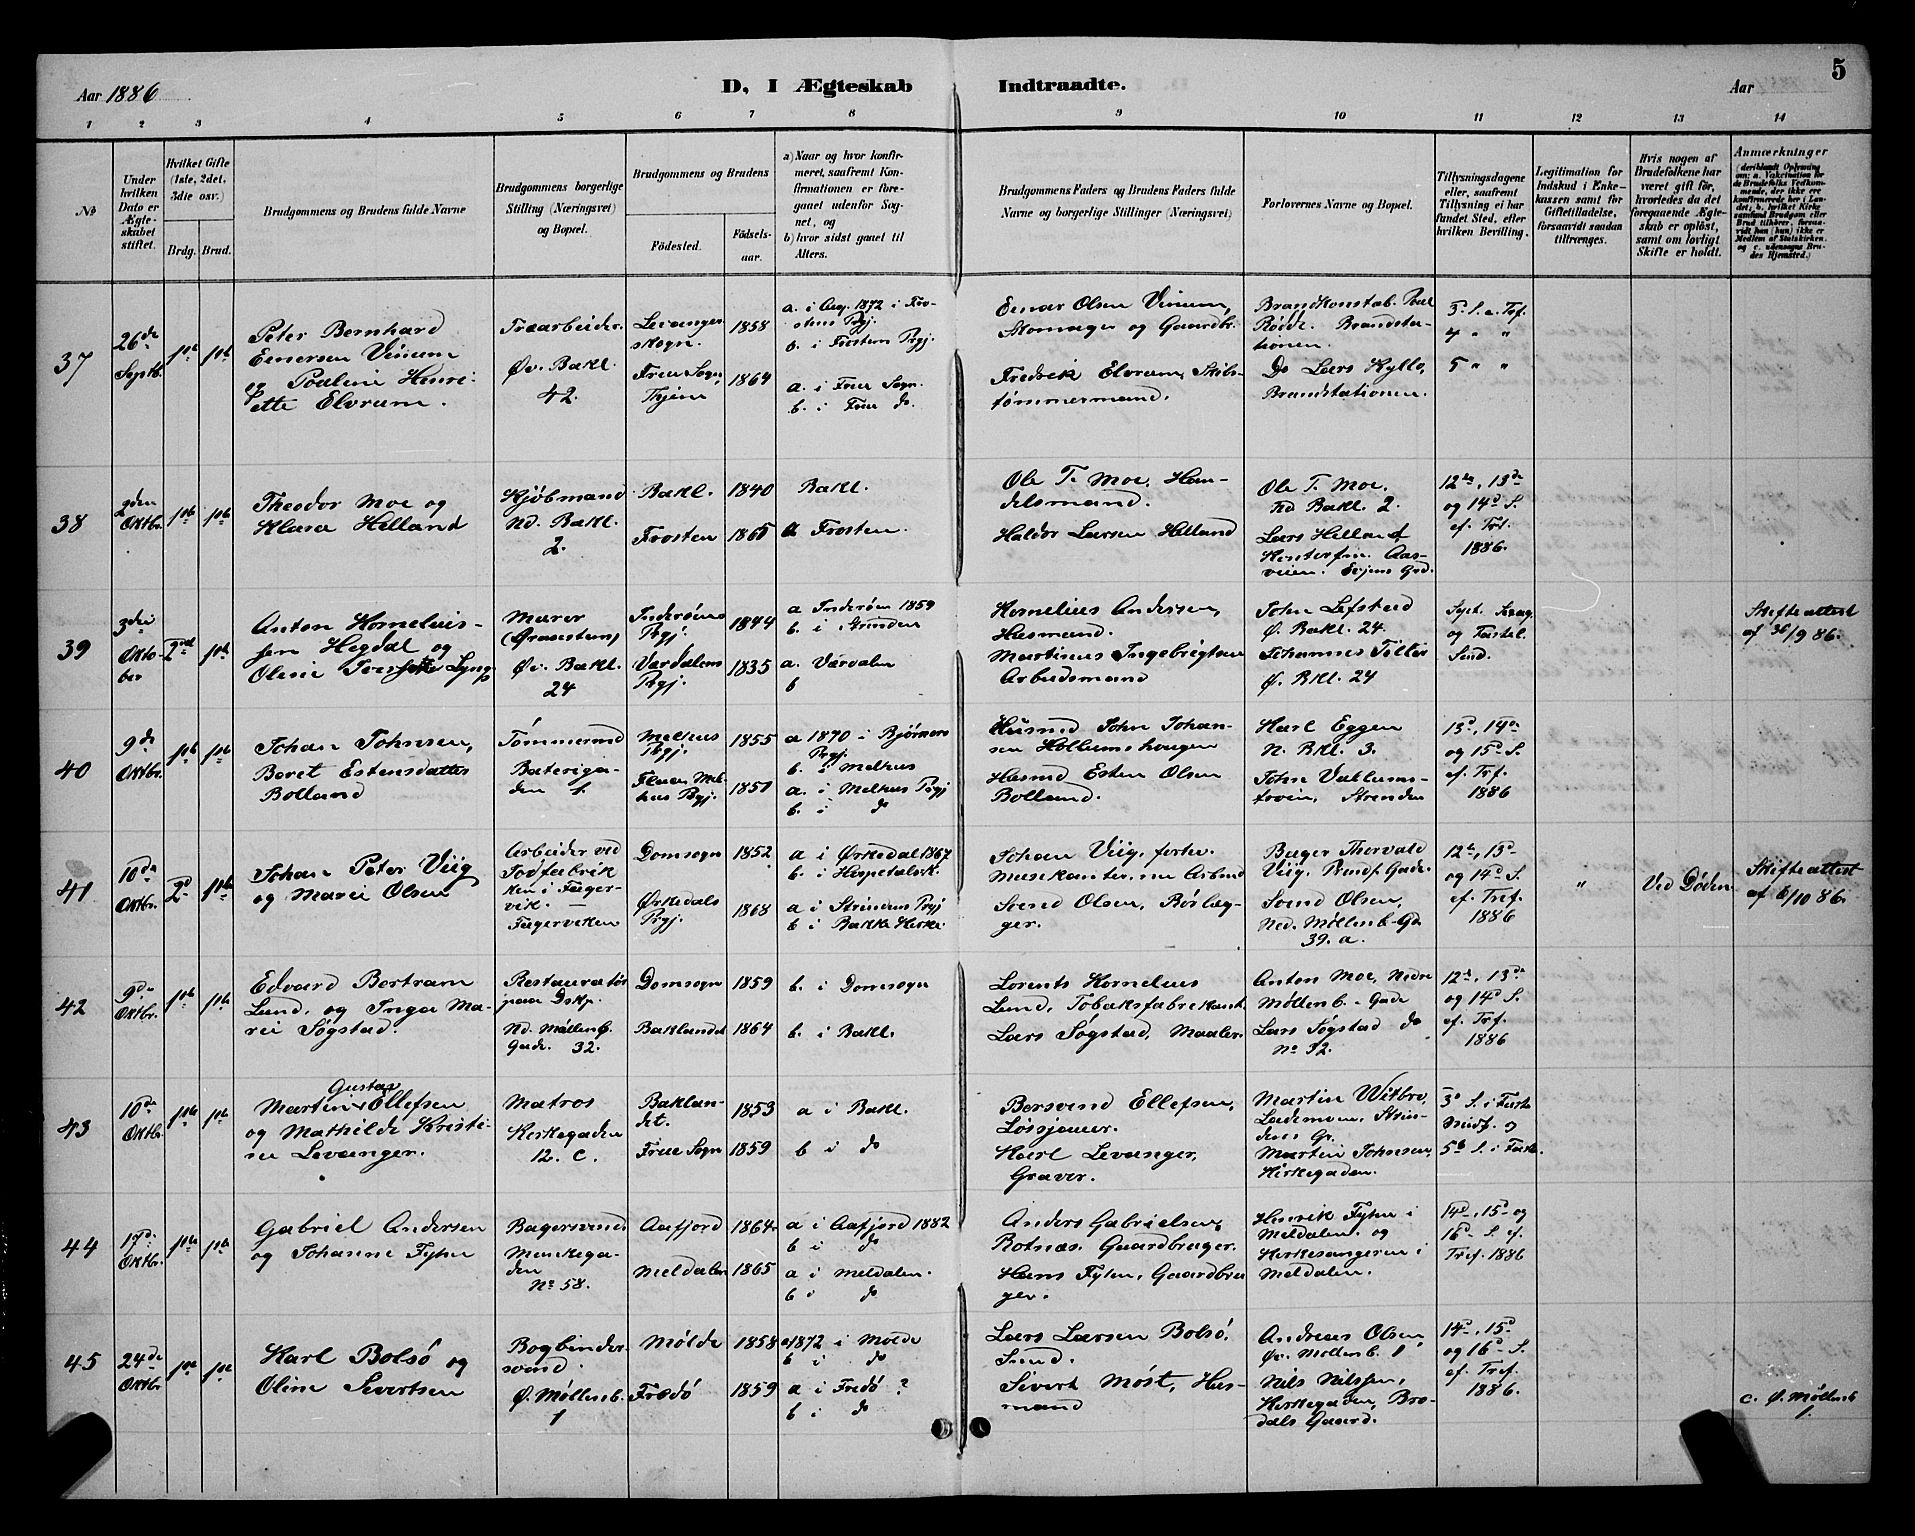 5
Aar 1886
D, I Ægteskab Indtraadte.
Aar
1 2 3 4 5 6 7 8 9 10 11 12 13 14
No
Under hvilken Dato er Ægteskabet stiftet.
Hvilket Gifte (1ste, 2det, 3die osv.)
Brdg. Brud.
Brudgommens og Brudens fulde Navne
Brudgommens borgerlige Stilling (Næringsvei) og Bopæl.
Brudgommens og Brudens
Födested.
Födselsaar.
a) Naar og hvor konfirmeret, saafremt Konfirmationen er foregaaet udenfor Sognet, og
b) hvor sidst gaaet til Alters.
Brudgommens Faders og Brudens Faders fulde Navne og borgerlige Stillinger (Næringsvei)
Forlovernes Navne og Bopæl.
Tillysningsdagene eller, saafremt Tillysning ei har fundet Sted, efter hvilken Bevilling.
Legitimation for Indskud i Enkekassen samt for Giftetilladelse, forsaavidt saadan tiltrænges.
Hvis nogen af Brudefolkene har været gift för, hvorledes da det foregaaende Ægteskab er oplöst, samt om lovligt Skifte er holdt.
Anmærkninger
(deriblandt Oplysning om: a. Vakcination for de Brudefolks Vedkommende, der ikke ere konfirmerede her i Landet; b. hvilket Kirkesamfund Brudgom eller Brud tilhörer, forsaavidt han (hun) ikke er Medlem af Statskirken. og c. udensogns Brudes Hjemsted.)
37
26de Septb.
1ste 1ste
Peter Bernhard
Einersen Vinum
og Pouline Henri-
ette Elvrum.
Træarbeider
Øv. Bakl.
42.
Levanger
skogn.
1858
Frue Sogn,
Thjem
1864
a. i Aug. 1872 i Fro-
stens Pgj.
b. i Frosten Pgj.
a. i Frue Sogn.
b. i Frue do
Einar Olsen Vinum,
Skomager og Gaardbr.
Fredrik Elvrum, Skibs-
tømmermand.
Brandkonstab. Poul
Rødde. Brandsta-
tionen.
Do Lars Kyllo,
Brandstationen.
3 S. e. Tref.
4 " "
5 " "
38
2den Oktbr.
1ste 1ste
Theodor Moe og
Klara Helland
Kjøbmand
Nd. Bakl.
2.
Bakl. 1840
Frosten 1865
Bakl.
a Frosten.
Ole T. Moe, Han-
delsmand.
Haldor Larsen Helland
Ole T. Moe.
Nd Bakl. 2.
Lars Helland
Aas-
veien. Evjens Grd.
12te, 13de
og 14d S.
ef. Trf.
1886.
39
3die Okto-
ber
2det 1ste
Anton Kornelius-
sen Hegdal og
Oline
Murer
Øv. Bakl.
24
Inderøens
Pgj.
1844
Værdalens
Pgj.
1835
a Inderøen 1859
b. i Strinden
a. Værdalen
b
Kornelius Andersen,
Husmand.
Martinus Ingebrigtsen
Arbeidsmand
John Lefstad
Ø. Bakl. 24.
Johannes Tiller
Ø. Bkl. 24
og
Skifteattest
af 30/9 86.
40
9de Oktbr.
1ste 1ste
Johan Johnsen,
Beret Estensdatter
Bolland
Tömmermd
Baterigа-
den 1.
Melhus
Pgj.
1855
Flaa Mel-
hus Pgj.
1851
a 1870 i Bjørnørs
Pgj.
b. i Melhus
a. i Melhus Pgj
b. i do
Husmd John Johan-
sen
Husmd Esten Olsen
Bolland.
Karl Eggen
N. Bkl. 3.
John
Strinden
13d, 14de
og 15d S.
ef. Trf.
1886
41
10de Oktbr.
2d 1ste
Johan Peter Viig
og Marie Olsen
Arbeider ved
Jodfabrik
ken i Fager-
vik. —
Fagerviken
Domsogn 1852
Ørkedals
Pgj.
1868
a i Ørkedal 1867
b. i Hospitalsk.
a i Strindens Pgj
b. i Bakke Kirke.
Johan Viig, forhv.
Musikanter, nu Arbmd
Svend Olsen, Rörlæg-
ger.
Bager Thorvald
Viig,
Svend Olsen,
Ned. Møllenb-Gd
39. a.
12te, 13d
og 14d S.
ef. Tref.
1886
"
Ved Døden
Skifteattest
af 6/10 86.
42
9de Oktbr.
1ste 1ste
Edvard Bertram
Lund, og Inga Ma-
rie Søgstad.
Restauratør
paa Dskp.
Nd. Møllenb.
Gade. 32.
Domsogn 1859
Baklandet 1864
b. i Domsogn
b. i Bakl.
Lorents Kornelius
Lund, Tobaksfabrikant.
Lars Søgstad, Maaler.
Anton Moe, Nedre
Møllenb-Gade
Lars Søgstad do
No 32.
12te, 13de
og 14d S.
ef. Trf.
1886
43
10de Oktbr.
1ste 1ste
Gustav
Martin Ellefsen
og Mathilde Kristi-
ne Levanger.
Matros
Kirkegaden
12. c.
Baklan-
det.
1853
Frue Sogn 1859
a i Bakl.
b i do
Bersvend Ellefsen,
Løssjouer.
Karl Levanger,
Graver.
Martin Witbro,
Lademoen, Strin-
dens Gr.
Martin Johnsen,
Kirkegaden.
3d S. i Faste
5te S. i Faste.
44
17de Oktbr.
1ste 1ste
Gabriel Andersen
og Johanne Fyhn
Bagersvend
Munkega-
den
No 58.
Aafjord 1864
Meldalen 1865
a i Aafjord 1882
b i do
a i Meldalen.
b i do
Anders Gabrielsen,
Rotnæs. Gaardbruger.
Hans Fyhn, Gaardbru
ger.
Henrik Fyhn i
Meldalen og
Kirkesangeren i
Meldalen.
14d, 15- og
16d- S. ef.
Tref. 1886
45
24de Oktbr.
1ste 1ste
Karl Bolsø og
Oline Sivertsen
Bogbinder
svend.
Ø. Møllenb.
1
Molde 1858
Frædö 1859
a 1872 i Molde
b i do
a i Fredö ?
b i do
Lars Larsen Bolsø,
Sivert Møst, Hus-
mand
Andreas Olsen
Øv. Møllenb. 1
Nils Nilssen,
Kirkegaden, Bro-
dals Gaard.
14d, 15d
og 16d S.
ef. Tref.
1886.
c. Ø. Møllenb
1.